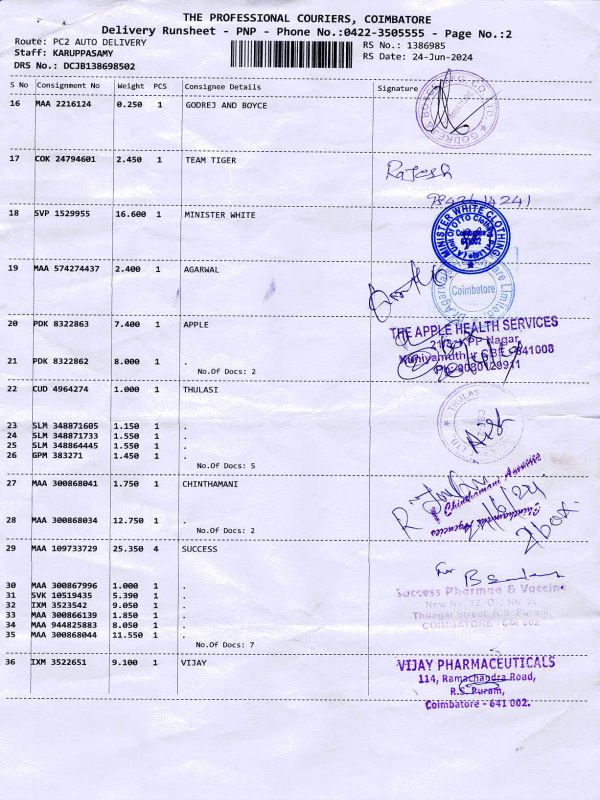 THE PROFESSIONAL COURIERS, COIMBATORE
Delivery Runsheet - PNP - Phone No.:0422-3505555 - Page No.:2
Route: PC2 AUTO DELIVERY RS No.: 1386985
Staff: KARUPPASAMY RS Date: 24-Jun-2024
DRS No.: DCJB138698502
S No Consignment No Weight PCS Consignee Details Signature
16 MAA 2216124 0.250 1 GODREJ AND BOYCE
17 COK 24794601 2.450 1 TEAM TIGER
Rajesh
18 SVP 1529955 16.600 1 MINISTER WHITE
MINISTER WHITE CLOTHING
19 MAA 574274437 2.400 1 AGARWAL
Coimbatore
20 PDK 8322863 7.400 1 APPLE
THE APPLE HEALTH SERVICES
KPP Nagar
21 PDK 8322862 8.000 1 .
No.Of Docs: 2
22 CUD 4964274 1.000 1 THULASI
THULASI
23 SLM 348871605 1.150 1 .
24 SLM 348871733 1.550 1 .
25 SLM 348864445 1.550 1 .
26 GPM 383271 1.450 1 .
No.Of Docs: 5
27 MAA 300868041 1.750 1 CHINTHAMANI
28 MAA 300868034 12.750 1 .
No.Of Docs: 2
29 MAA 109733729 25.350 4 SUCCESS
For
Success Pharmaa & Vaccine
30 MAA 300867996 1.000 1 .
31 SVK 10519435 5.390 1 .
32 IXM 3523542 9.050 1 .
33 MAA 300866139 1.850 1 .
Thiagar Street, R.S. Puram,
34 MAA 944825883 8.050 1 .
COIMBATORE - 641 002
35 MAA 300868044 11.550 1 .
No.Of Docs: 7
36 IXM 3522651 9.100 1 VIJAY
VIJAY PHARMACEUTICALS
114, Ramachandra Road,
R.S. Puram,
Coimbatore - 641 002.